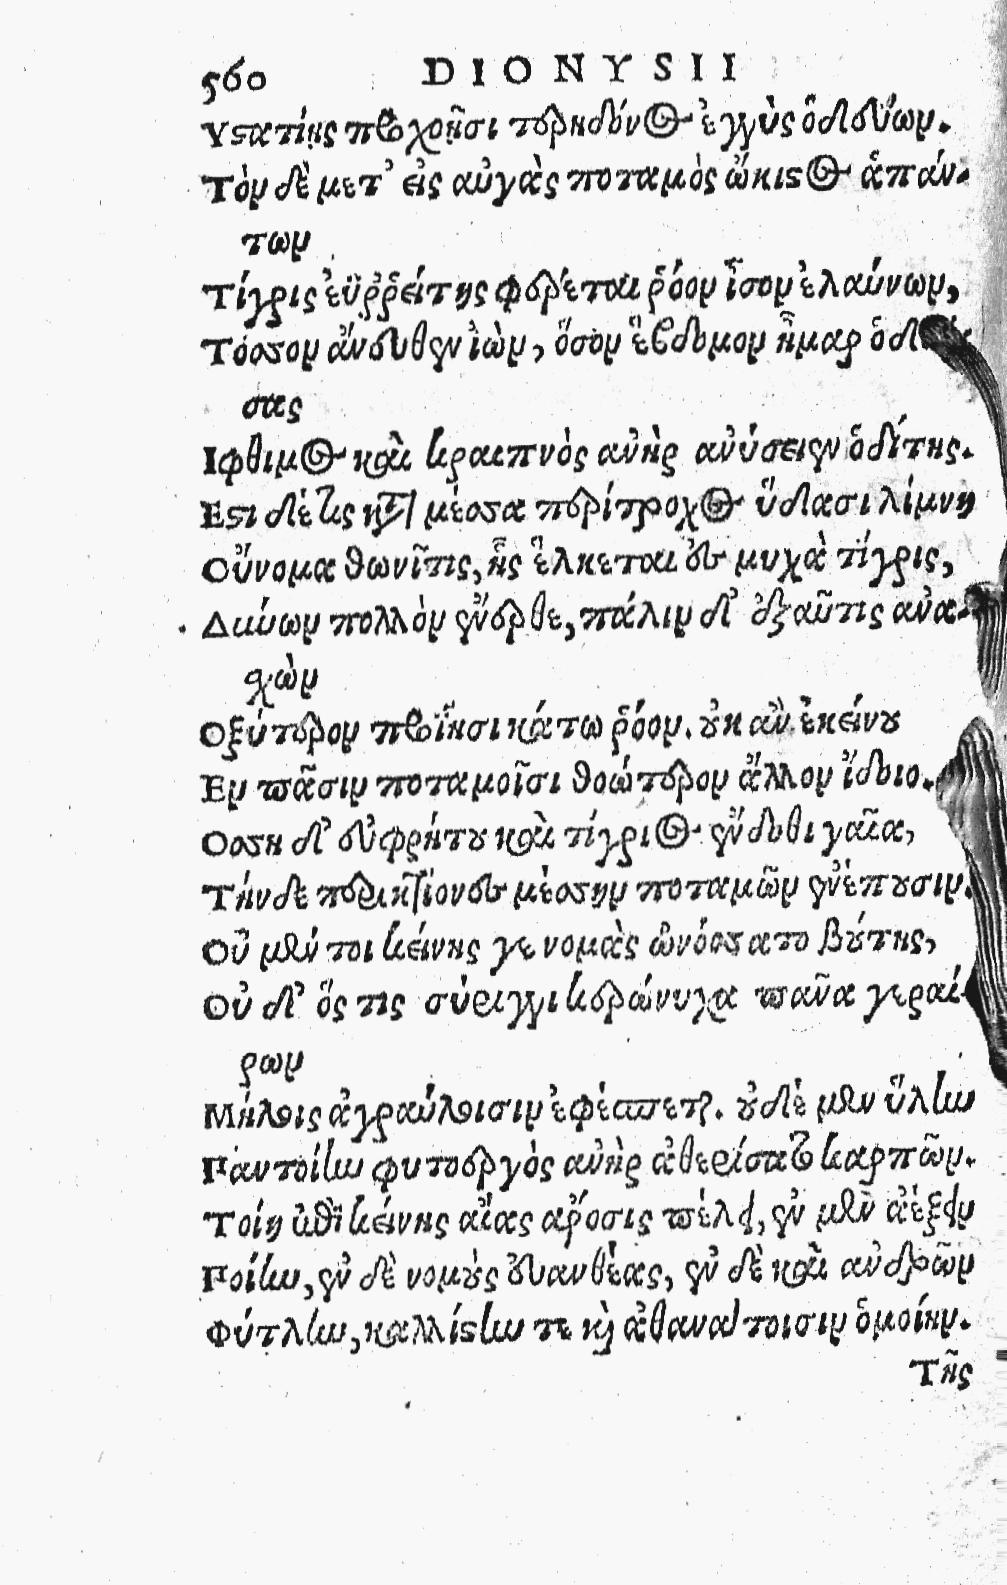 560 DIONYSII
Υστατίης προχοῇσι τερηδόνος ἐγγὺς ὁδεύων.
Τὸν δὲ μετ' εἰς αὐγὰς ποταμὸς ὤκιστος ἁπάν-
των
Τίγρις ἐϋῤῥείτης φέρεται ῥόον ἶσον ἐλαύνων,
Τόσσον ἄνευθεν ἰὼν, ὅσον ἕβδομον ἦμαρ
σας
Ιφθιμος καὶ κραιπνὸς ανὴρ ανύσειεν ὁδίτης.
Εστι δέ τις κατὰ μέσσα περίτροχος ὕδασι λίμνη
Οὔνομα θωνῖτις, ἧς ἕλκεται ἐς μυχὰ τίγρις,
Δύνων πολλὸν ἔνερθε, πάλιν δ' ἐξαῦτις ανα-
χὼν
Οξύτερον προΐησι κάτω ῥόον. οὐκ ἂν ἐκείνου
Εν πᾶσιν ποταμοῖσι θοώτερον ἄλλον ἴδοιο.
Οσση δ' εὐφρήτου καὶ τίγριος ἔνδοθι γαῖα,
Τήνδε περικτίονες μέσσην ποταμῶν ἐνέπουσιν.
Οὔ μέν τοι κείνης γε νομὰς ὠνόσσατο βούτης,
Οὐ δ' ὅς τις σύριγγι κερώνυχα πᾶνα γεραί-
ρων
Μήλοις ἀγραύλοισιν ἐφέσπεται. οὐδὲ μὲν ὕλην
Παντοίην φυτοεργὸς ανὴρ ἀθερίσσατο καρπῶν.
Τοίη ἐπὶ κείνης αἴας αροσις πέλει, ἐν μὲν ἀέξειν
Ποίην, ἐν δὲ νομοὺς εὐανθέας, ἐν δὲ καὶ ανδρῶν
Φύτλην, καλλίστην τε καὶ ἀθανάτοισιν ὁμοίην.
Τῆς